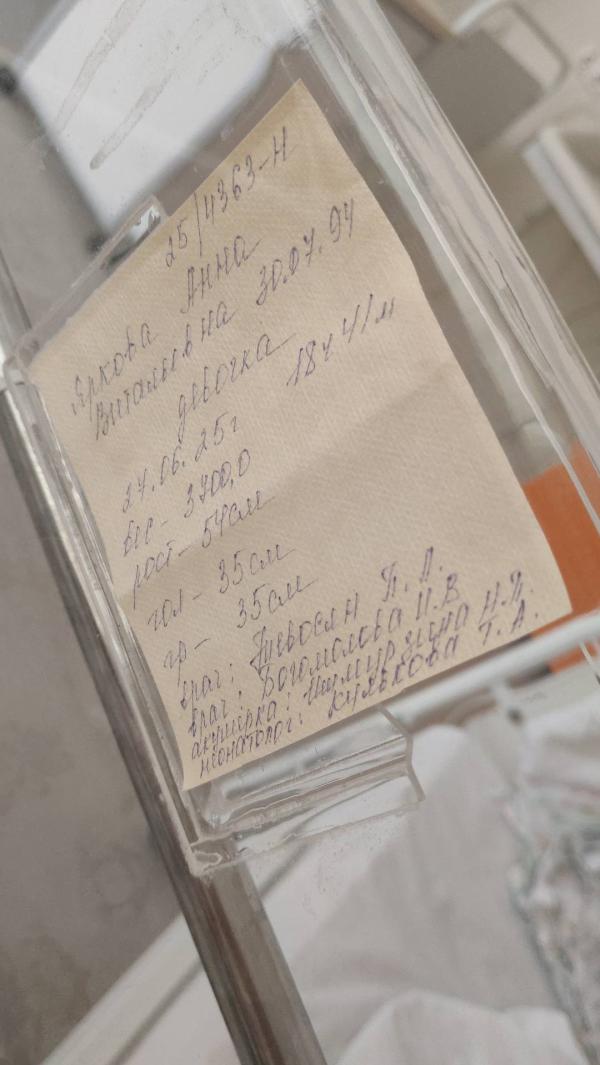 25/4363-Н
Яркова Анна
Витальевна 30.07.94
девочка
27.06.25г 18ч 41м
вес- 3700,0
рост- 54см
гол- 35см
гр- 35см
врач: П.Л.
врач: Богомолова И.В
акушерка: Шумурзина Н.П.
неонатолог: Кулькова Т.А.